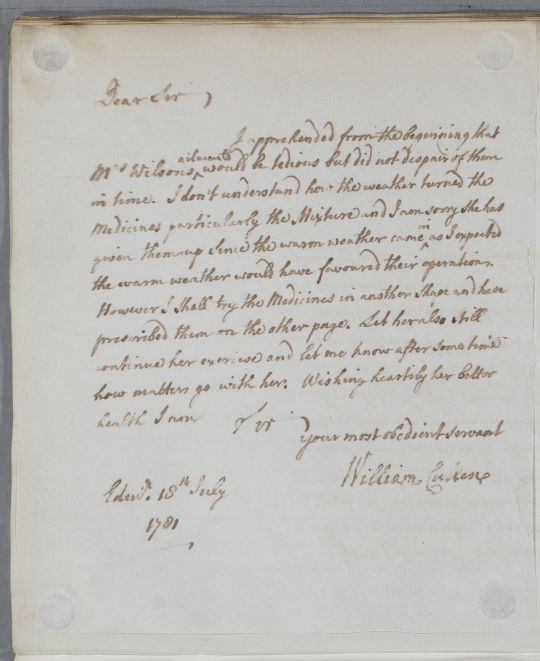 Dear Sir,
I apprehended from the beginning that
ailments
Mrs Wilsons ‸ would be tedious but did not despair of them
in time. I don't understand how the weather turned the
Medicines particularly the Mixture and I am sorry she has
in
given them up since the warm weather came ‸ as I expected
the warm weather would have favoured their operation.
However I shall try the Medicines in another shape and have
prescribed them on the other page. Let her also still
continue her exercise and let me know after some time
how matters go with her. Wishing heartily her better
health I am Sir
your most obedient servant
William Cullen
Edinr. 18th July
1781